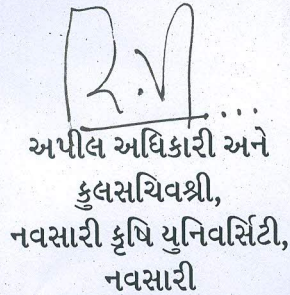 R.V...
અપીલ અધિકારી અને
કુલસચિવશ્રી,
નવસારી કૃષિ યુનિવર્સિટી,
નવસારી